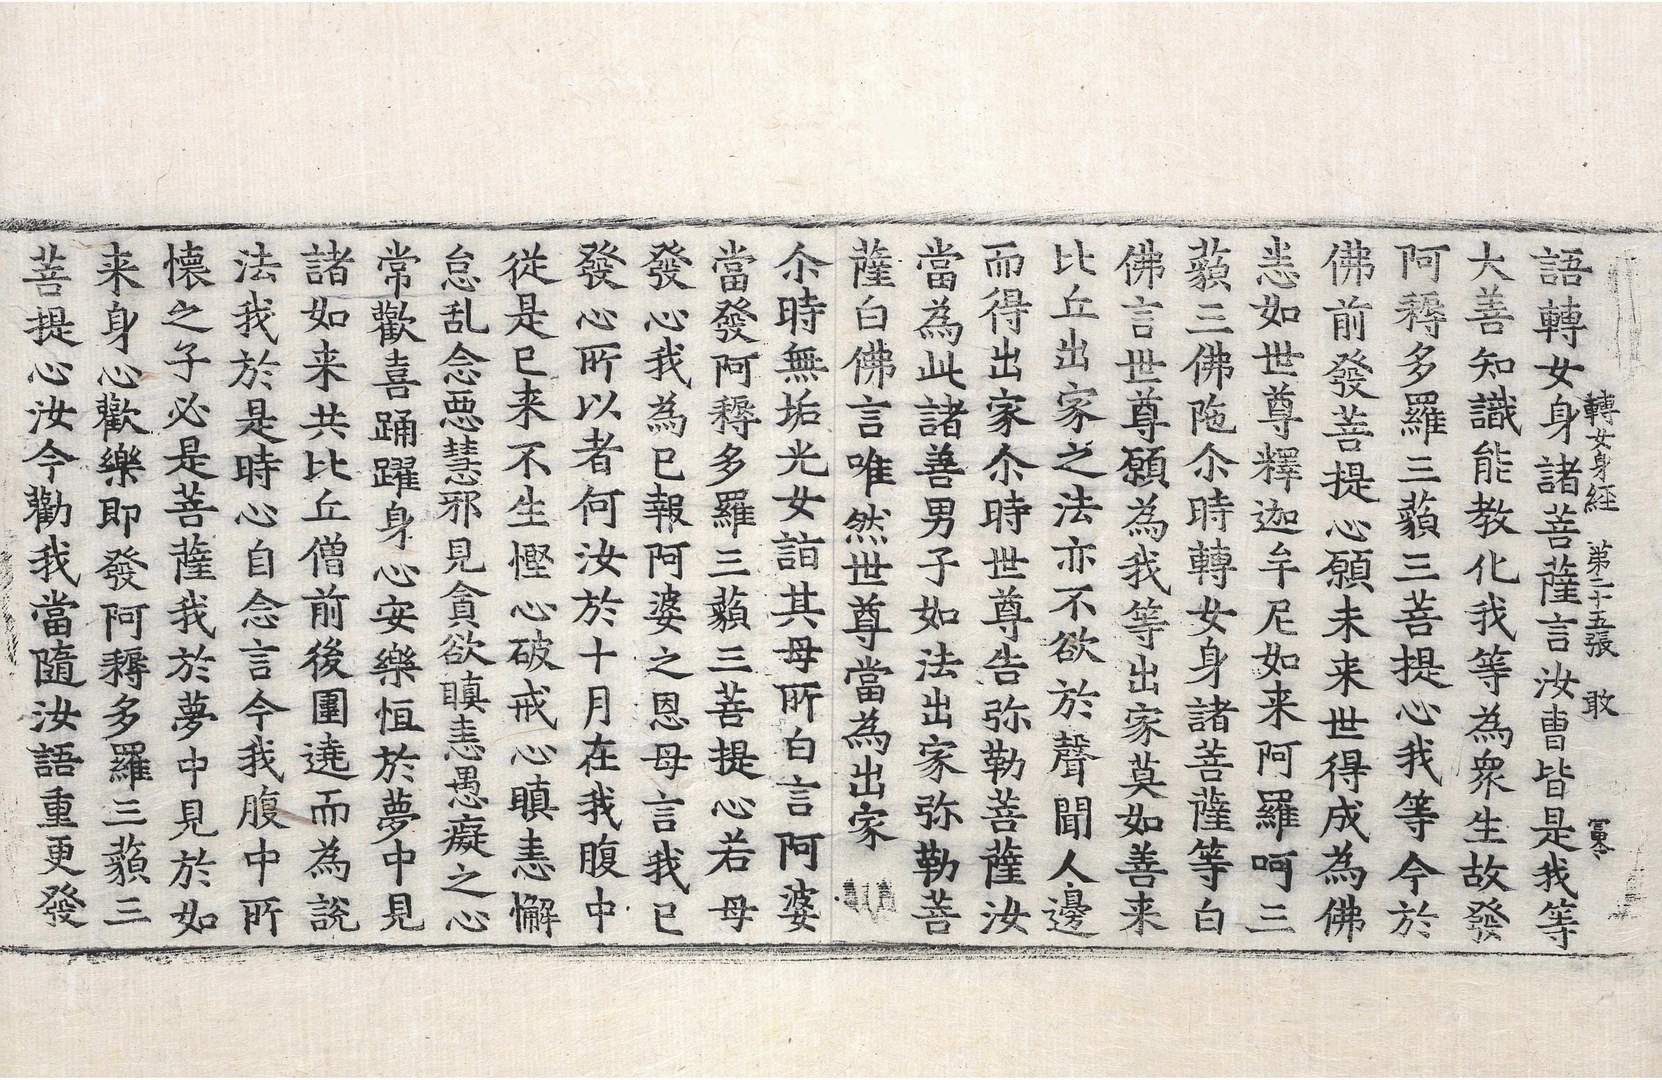 轉女身經 第二十五張 敢
語轉女身諸菩薩言汝曹皆是我等
大善知識能教化我等為衆生故發
阿耨多羅三藐三菩提心我等今於
佛前發菩提心願未来世得成為佛
恚如世尊釋迦牟尼如来阿羅呵三
藐三佛陁尒時轉女身諸菩薩等白
佛言世尊願為我等出家莫如善来
比丘出家之法亦不欲於聲聞人邊
而得出家尒時世尊告弥勒菩薩汝
當為此諸善男子如法出家弥勒菩
薩白佛言唯然世尊當為出家
尒時無垢光女詣其母所白言阿婆
當發阿耨多羅三藐三菩提心若母
發心我為已報阿婆之恩母言我已
發心所以者何汝於十月在我腹中
從是已来不生慳心破戒心瞋恚懈
怠乱念悪慧邪見貪欲瞋恚愚癡之心
常歡喜踊躍身心安樂恒於夢中見
諸如来共比丘僧前後圍遶而為說
法我於是時心自念言今我腹中所
懷之子必是菩薩我於夢中見於如
来身心歡樂即發阿耨多羅三藐三
菩提心汝今勸我當隨汝語重更發